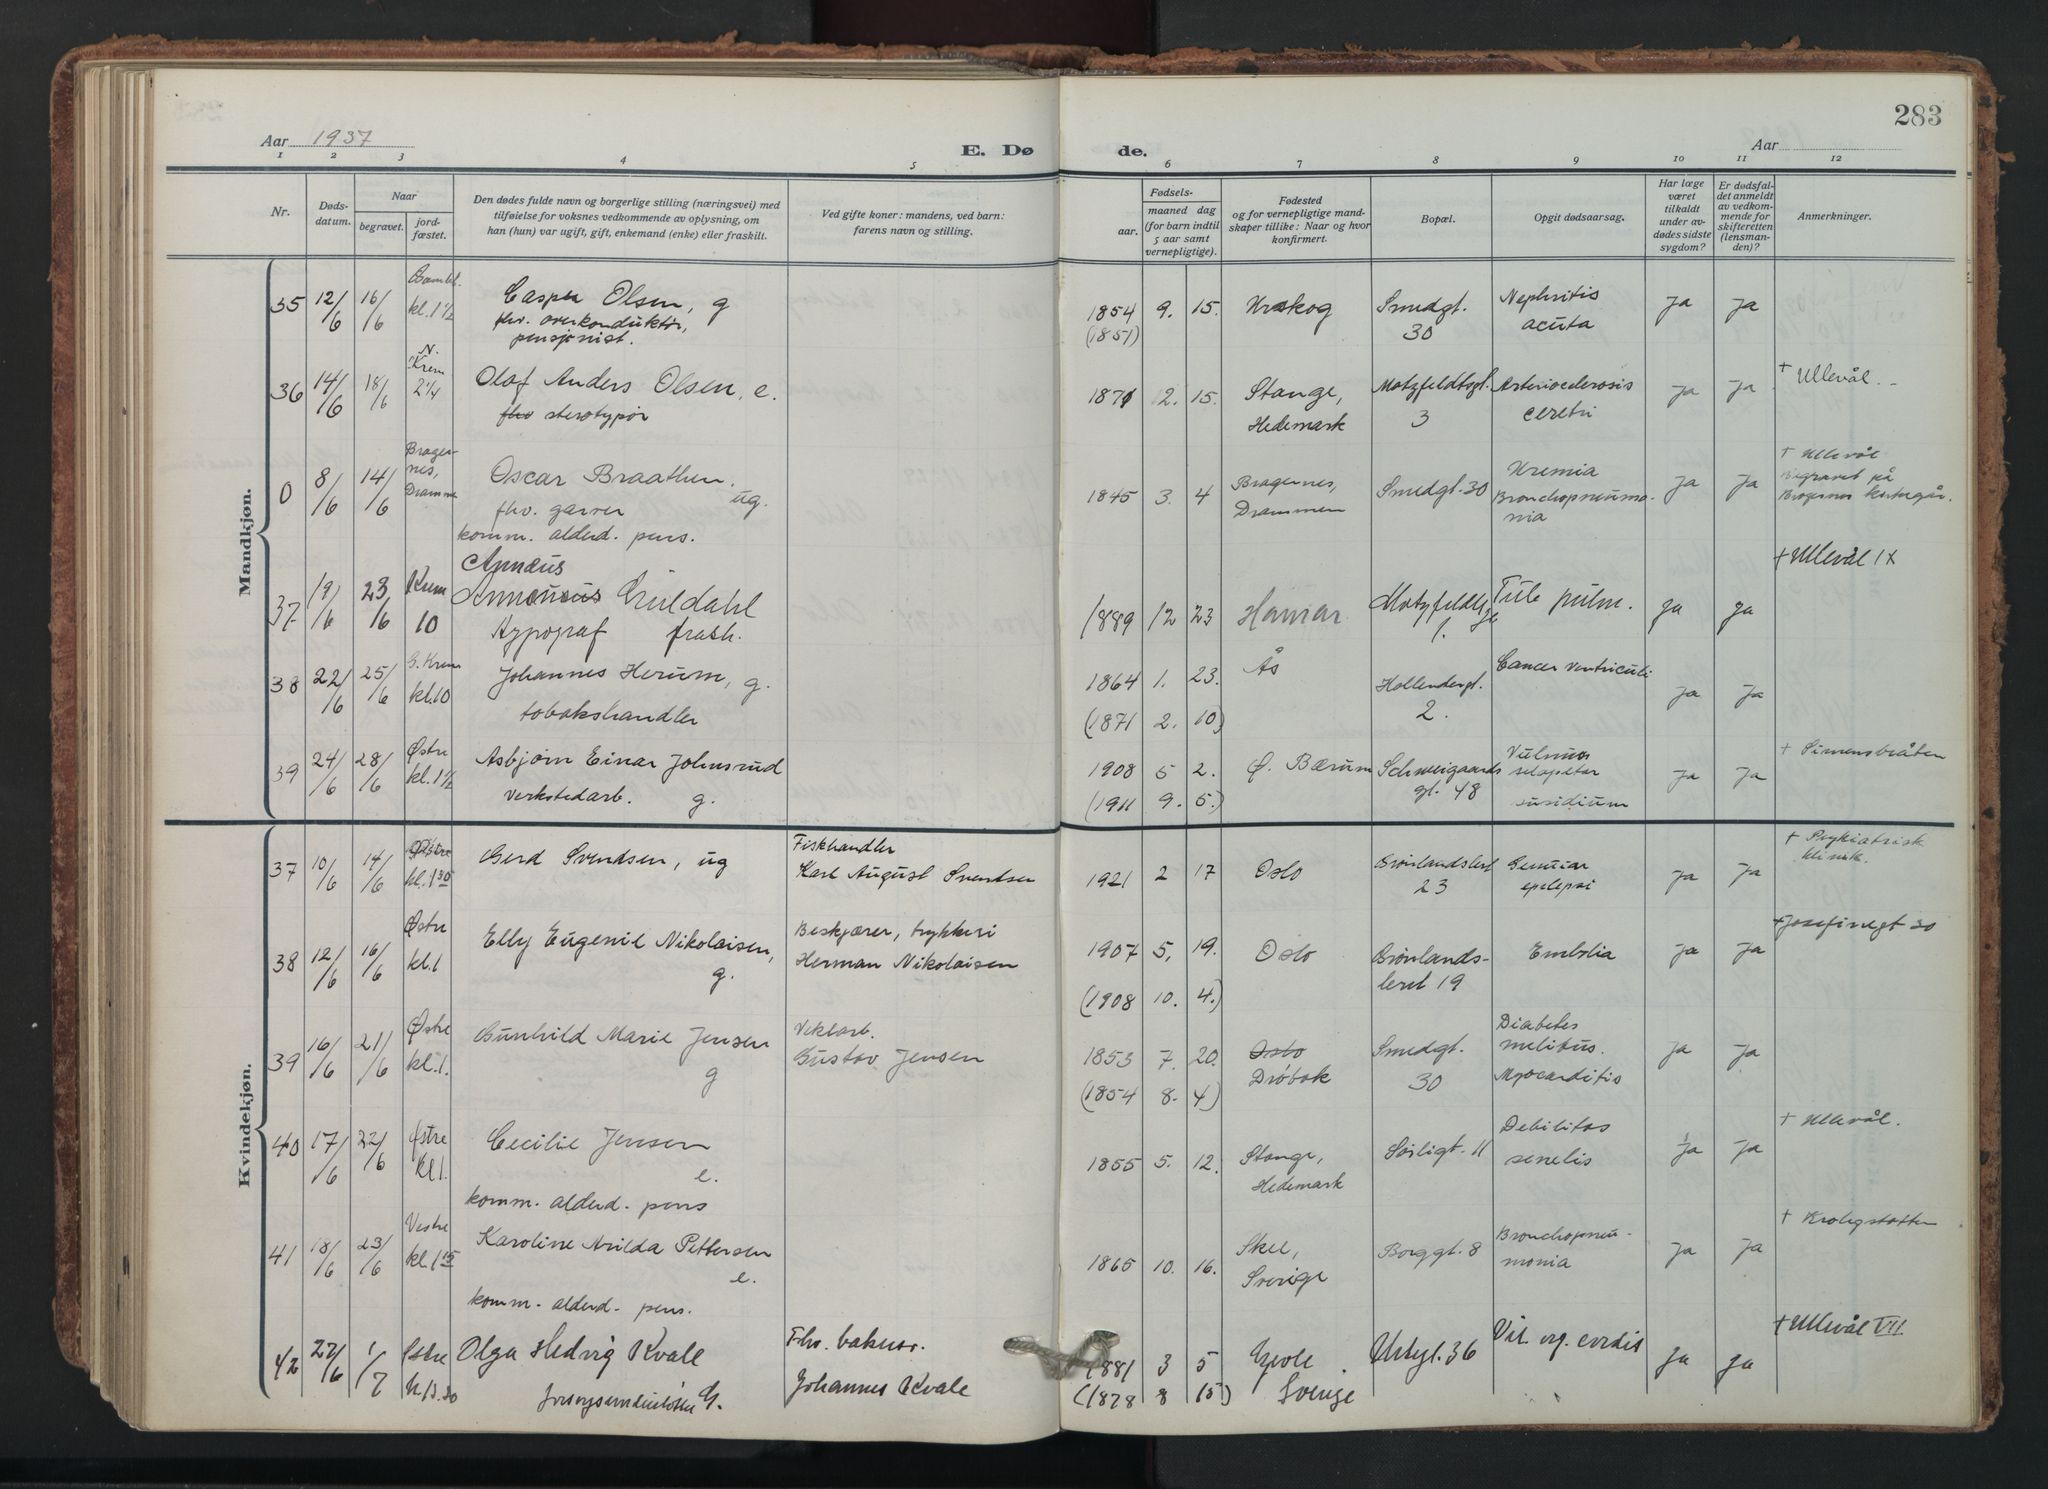 283
Aar 1937
E. Dø
de.
Aar
1 2 3 4 5 6 7 8 9 10 11 12
Nr.
Døds-
datum.
Naar
begravet.
jord-
fæstet.
Den dødes fulde navn og borgerlige stilling (næringsvei) med
tilføielse for voksnes vedkommende av oplysning, om
han (hun) var ugift, gift, enkemand (enke) eller fraskilt.
Ved gifte koner: mandens, ved barn:
farens navn og stilling.
Fødsels-
aar.
maaned dag
(for barn indtil
5 aar samt
vernepligtige).
Fødested
og for vernepligtige mand-
skaper tillike: Naar og hvor
konfirmert.
Bopæl.
Opgit dødsaarsag.
Har læge
været
tilkaldt
under av-
dødes sidste
sygdom?
Er dødsfal-
det anmeldt
av vedkom-
mende for
skifteretten
(lensman-
den)?
Anmerkninger.
Mandkjøn.
35 12/6 16/6 kl. 1 1/2 Casper Olsen, g 1854 9. 15. Urskog Smedgt. Nephritis Ja Ja
fhv. overkonduktør, (1851) 30 acuta
pensjonist.
36 14/6 18/6 N. Krem 2 1/4 Olaf Anders Olsen, e. 1871 2. 15. Stange, Motzfeldtsgt. Arteriosclerosis Ja Ja + Ullevål.
fhv sterotypør Hedemark 3 cerebri
0 8/6 14/6 Brager-
nes,
Drammen Oscar Braathen. ug. 1845 3. 4 Bragernes, Smedgt. 30 Uremia Ja Ja + Ullevål
fhv. garver Drammen Bronchopneumo- Begravet på
komm. alderd. pens. nia Bragernes kirkegår.
Annæus
37 19/6 23/6 Krem 10 Guldahl 1889 12 23 Hamar Motzfeldtsgt Tub. pulm. Ja Ja + Ullevål IX
Typograf frask. 1.
38 22/6 25/6 G. Krem kl. 10 Johannes Herum, g. 1864 1. 23. Ås Hollendergt. Cancer ventriculi Ja Ja
tobakshandler (1871 2. 10) 2.
39 24/6 28/6 Østre kl. 1 1/2 Asbjørn Einar Johnsrud 1908 5 2. Ø. Bærum Schweigaards Vulnus Ja Ja + Simensbråten
verkstedarb. g. (1911 9. 5.) gt. 48 sclopetar
suicidium
Kvindekjøn.
37 10/6 14/6 Østre kl. 1 30 Gerd Svendsen, ug Fiskhandler 1921 2 17 Oslo Grønlandsleret Genuiar Ja Ja + Psykiatrisk
Karl August Svendsen 23 epilepsi klinik.
38 12/6 16/6 Østre kl. 1 Elly Eugenie Nikolaisen, Beskjærer, trykkeri 1907 5. 19. Oslo Grønlands- Embolia Ja Ja + Josefinegt 30
g. Herman Nikolaisen (1908 10. 4.) leret 19
39 16/6 21/6 Østre kl. 1. Gunhild Marie Jensen Vektarb. 1853 7. 20. Oslo Smedgt. Diabetes Ja Ja
g Gustav Jensen (1854 8. 4) Drøbak 30 melitus.
Myocarditis
40 17/6 22/6 Østre Kl 1. Cecilie Jensen 1855 5. 12. Stange, Sørligt. 11 Debilitas Ja Ja + Ullevål.
e. Hedemark senelis
komm. alderd. pens
41 18/6 23/6 Vestre kl. 1 15 Karoline Arilda Pettersen 1865 10. 16. Skee, Borggt. 8 Bronchopneu- Ja Ja + Krohgstøtten
e. Sverige monia
komm. alderd. pens.
42 27/6 1/7 Østre kl 13.30 Olga Hedvig Kvale Fhv. baker. 1881 3 5 Urtegt. 36 Vit. org. cordis Ja Ja + Ullevål VII
G. Johannes Kvale (1878 8 15) Sverige